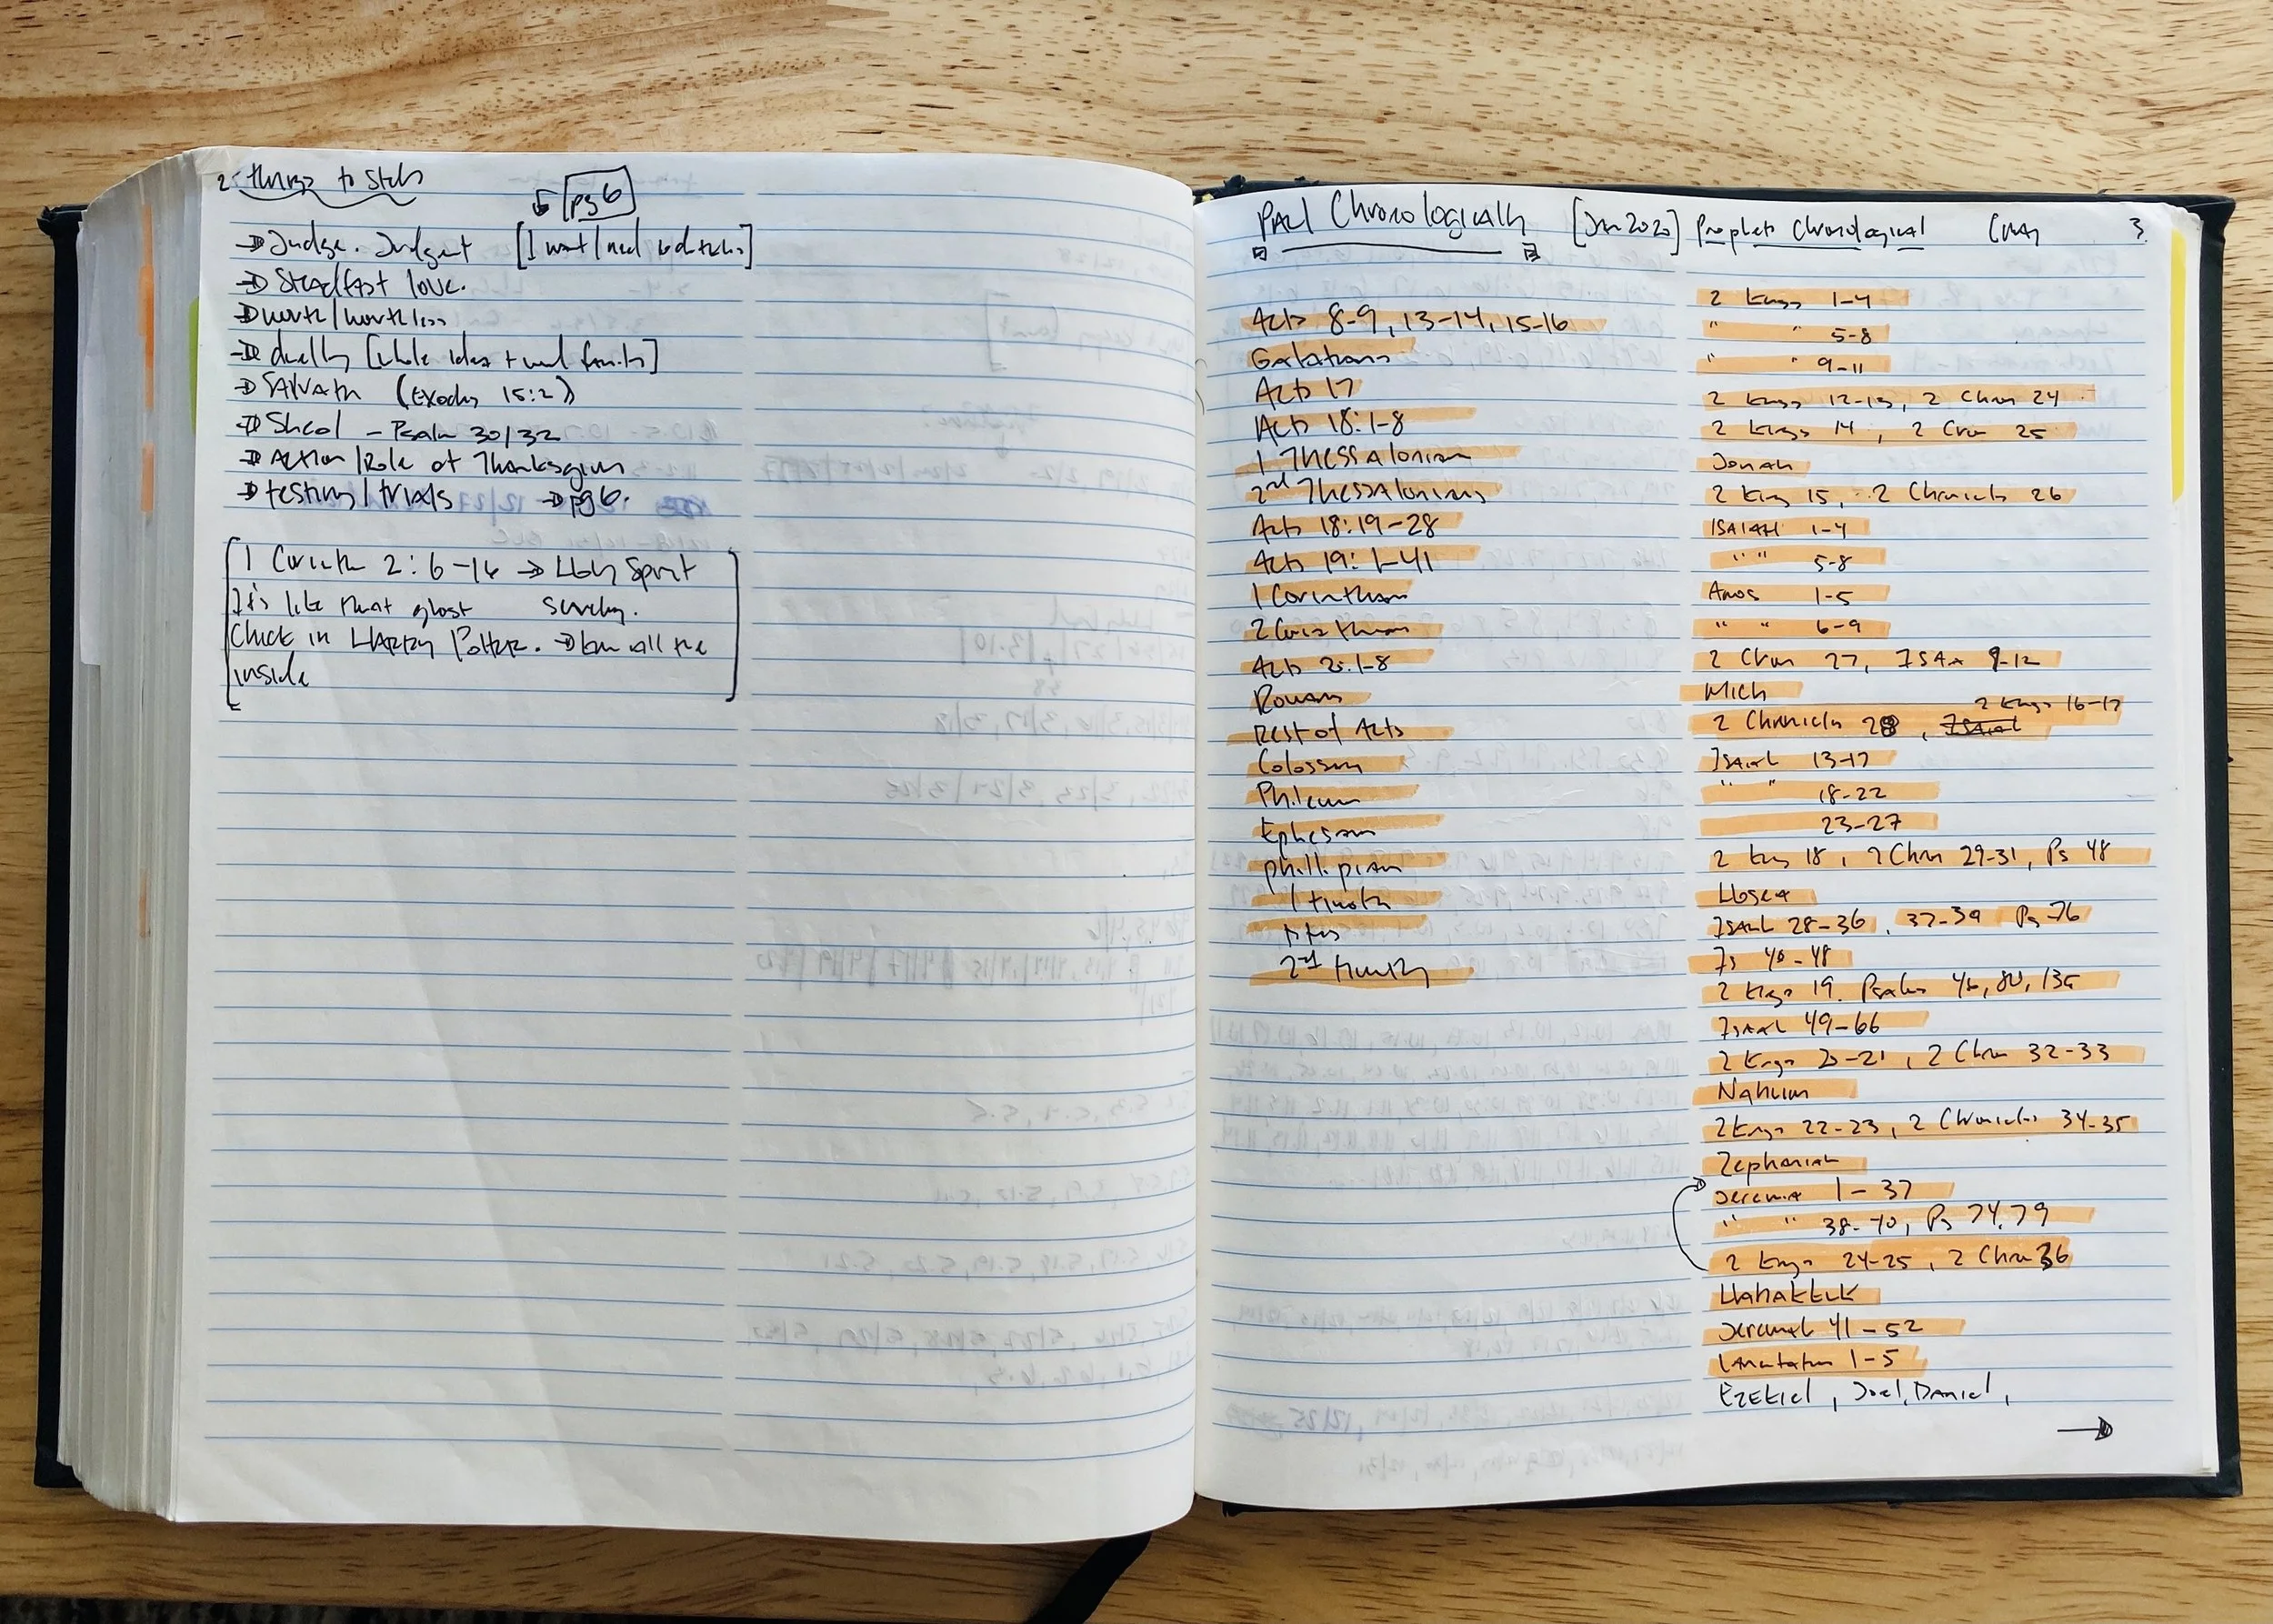 2. things to study
pg 6
→ Judge. Judgent [I want/need to do this]
→ Steadfast love.
→ worth/worthless
→ [whole idea + family]
→ Salvath (Exodus 15:2)
→ Sheol - Psalm 30/32
→ Action/Role of Thanksgiving
→ testing/trials → pg 6.
1 Corinth 2:6-16 → Holy Spirit
It's like that ghost
Chick in Harry Potter. → all the
inside
PAUL Chronologically [Jan 2020]
Acts 8-9, 13-14, 15-16
Galatians
Acts 17
Acts 18:1-8
1 Thessalonian
2nd Thessalonians
Acts 18:19-28
Acts 19:1-41
1 Corinthian
2 Corinthian
Acts 20:1-8
Romans
Rest of Acts
Colossian
Philemn
Ephesian
Phillipian
1 Timoth
Titus
2nd Timothy
Prophets Chronological 3.
2 Kings 1-4
" " 5-8
" " 9-11
2 Kings 12-13, 2 Chron 24
2 Kings 14, 2 Cron 25
Jonah
2 King 15, 2 Chronicls 26
ISAIAH 1-4
" " 5-8
Amos 1-5
" " 6-9
2 Chron 27, ISAA 9-12
Mich
2 Kings 16-17
2 Chronicls 28, Isaiah
Isaiah 13-17
" " 18-22
23-27
2 King 18, 2 Chron 29-31, Ps 48
Hosea
Isaiah 28-36, 37-39 Ps 76
Is 40-48
2 Kings 19. Psalms 46, 80, 135
Isaiah 49-66
2 Kings 20-21, 2 Chron 32-33
Nahum
2 Kings 22-23, 2 Chronicles 34-35
Zephaniah
Jeremia 1-37
" " 38-40, Ps 74, 79
2 Kings 24-25, 2 Chron 36
Habakkuk
Jeremiah 41-52
Lamentation 1-5
EZEKIEL, Joel, Daniel,